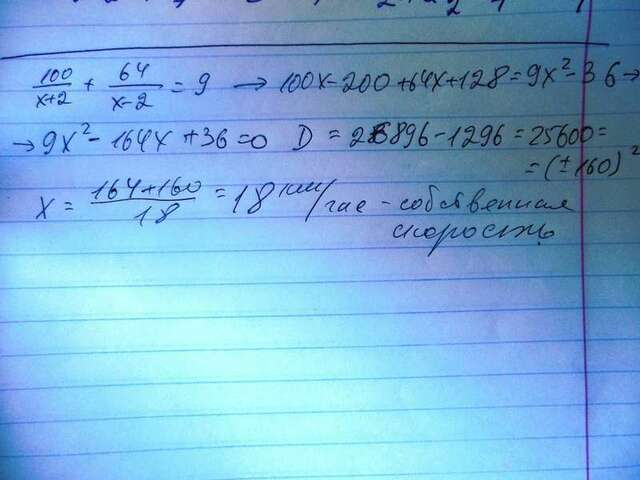 100/(x+2) + 64/(x-2) = 9 → 100x-200+64x+128=9x²-36→
→ 9x²-164x+36=0 D = 26896-1296=25600=
=(±160)²
X = (164+160)/18 = 18 км/час - собственная
скорость